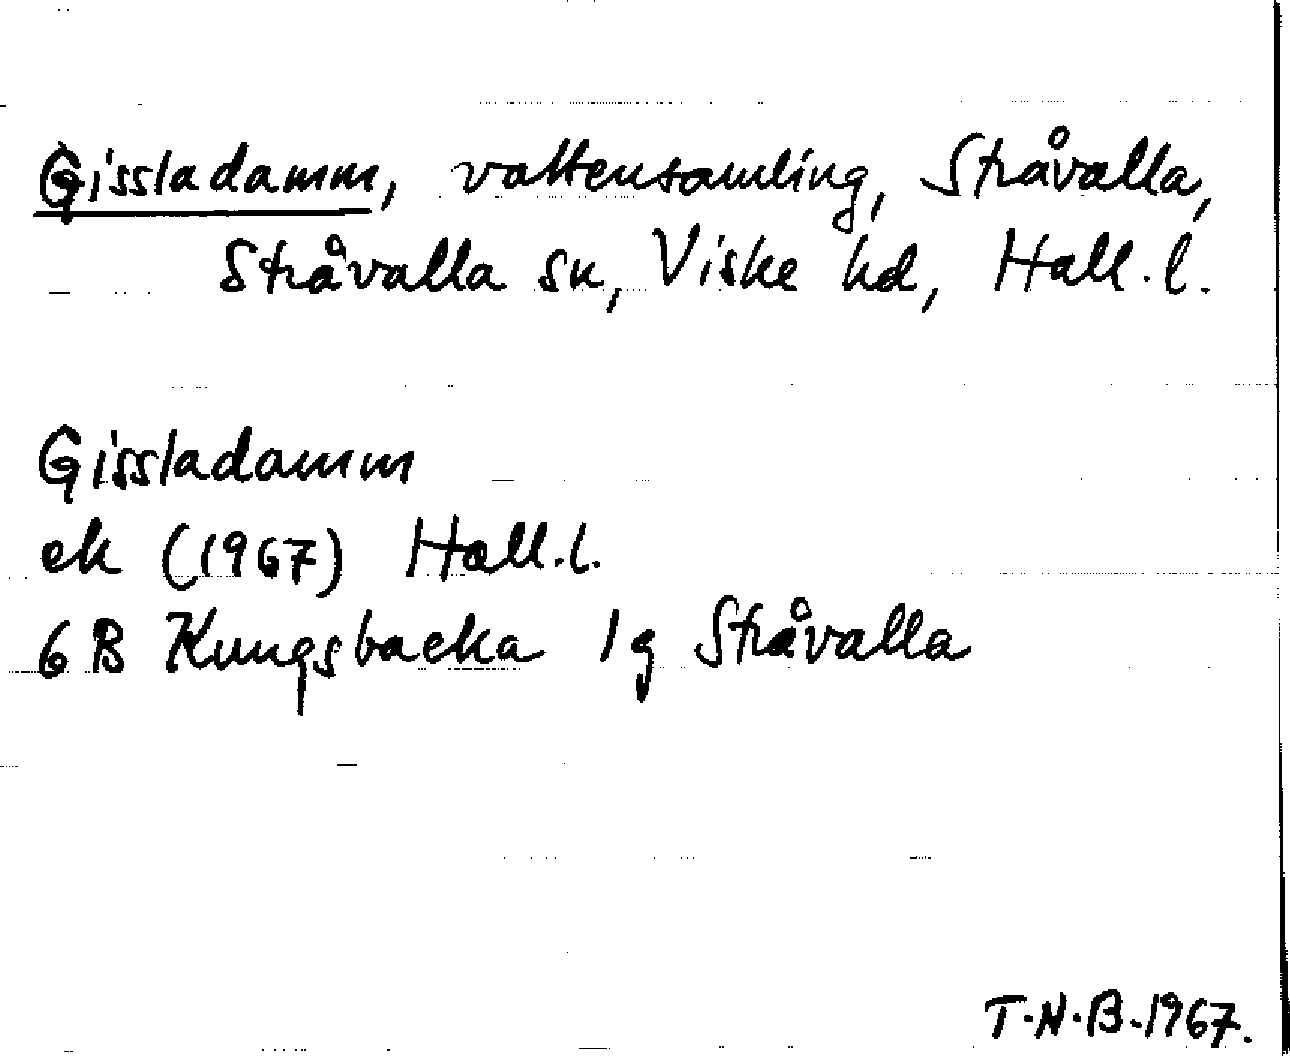 Gissladamm, vattensamling, Stråvalla,
Stråvalla sn, Viske hd, Hall.l.
Gissladamm
ek (1967) Hall.l.
6B Kungsbacka 1g Stråvalla
T.N.B.1967.